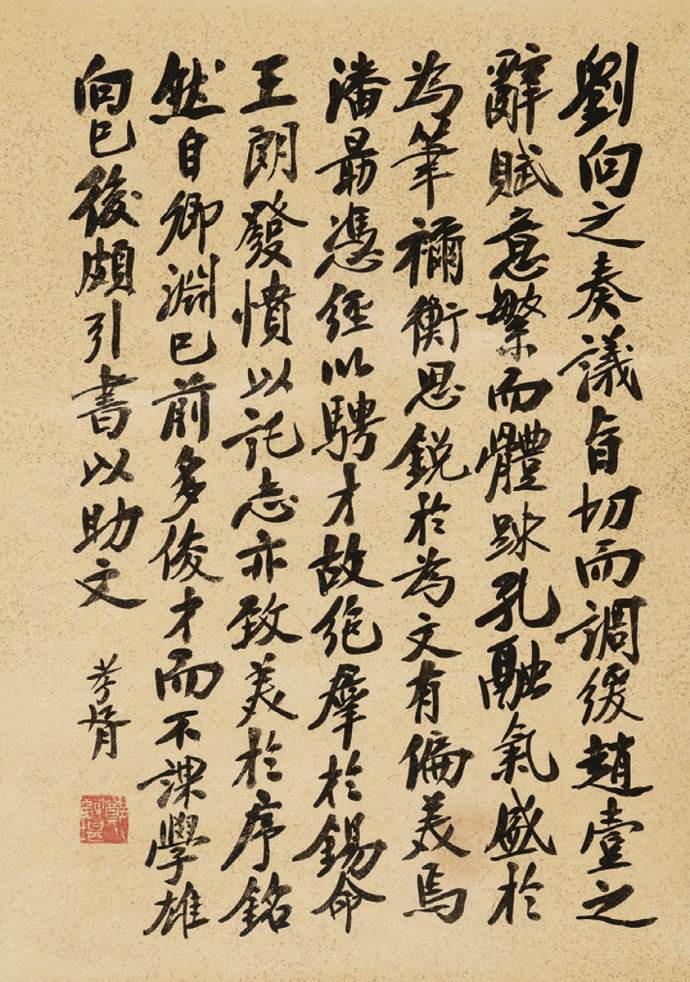 劉向之奏議旨切而調緩趙壹之
辭賦意繁而體疎孔融氣盛於
為筆禰衡思銳於為文有偏美焉
潘勗憑經以騁才故絕羣於錫命
王朗發憤以託志亦致美於序銘
然自卿淵已前多俊才而不課學雄
向已後頗引書以助文
孝胥